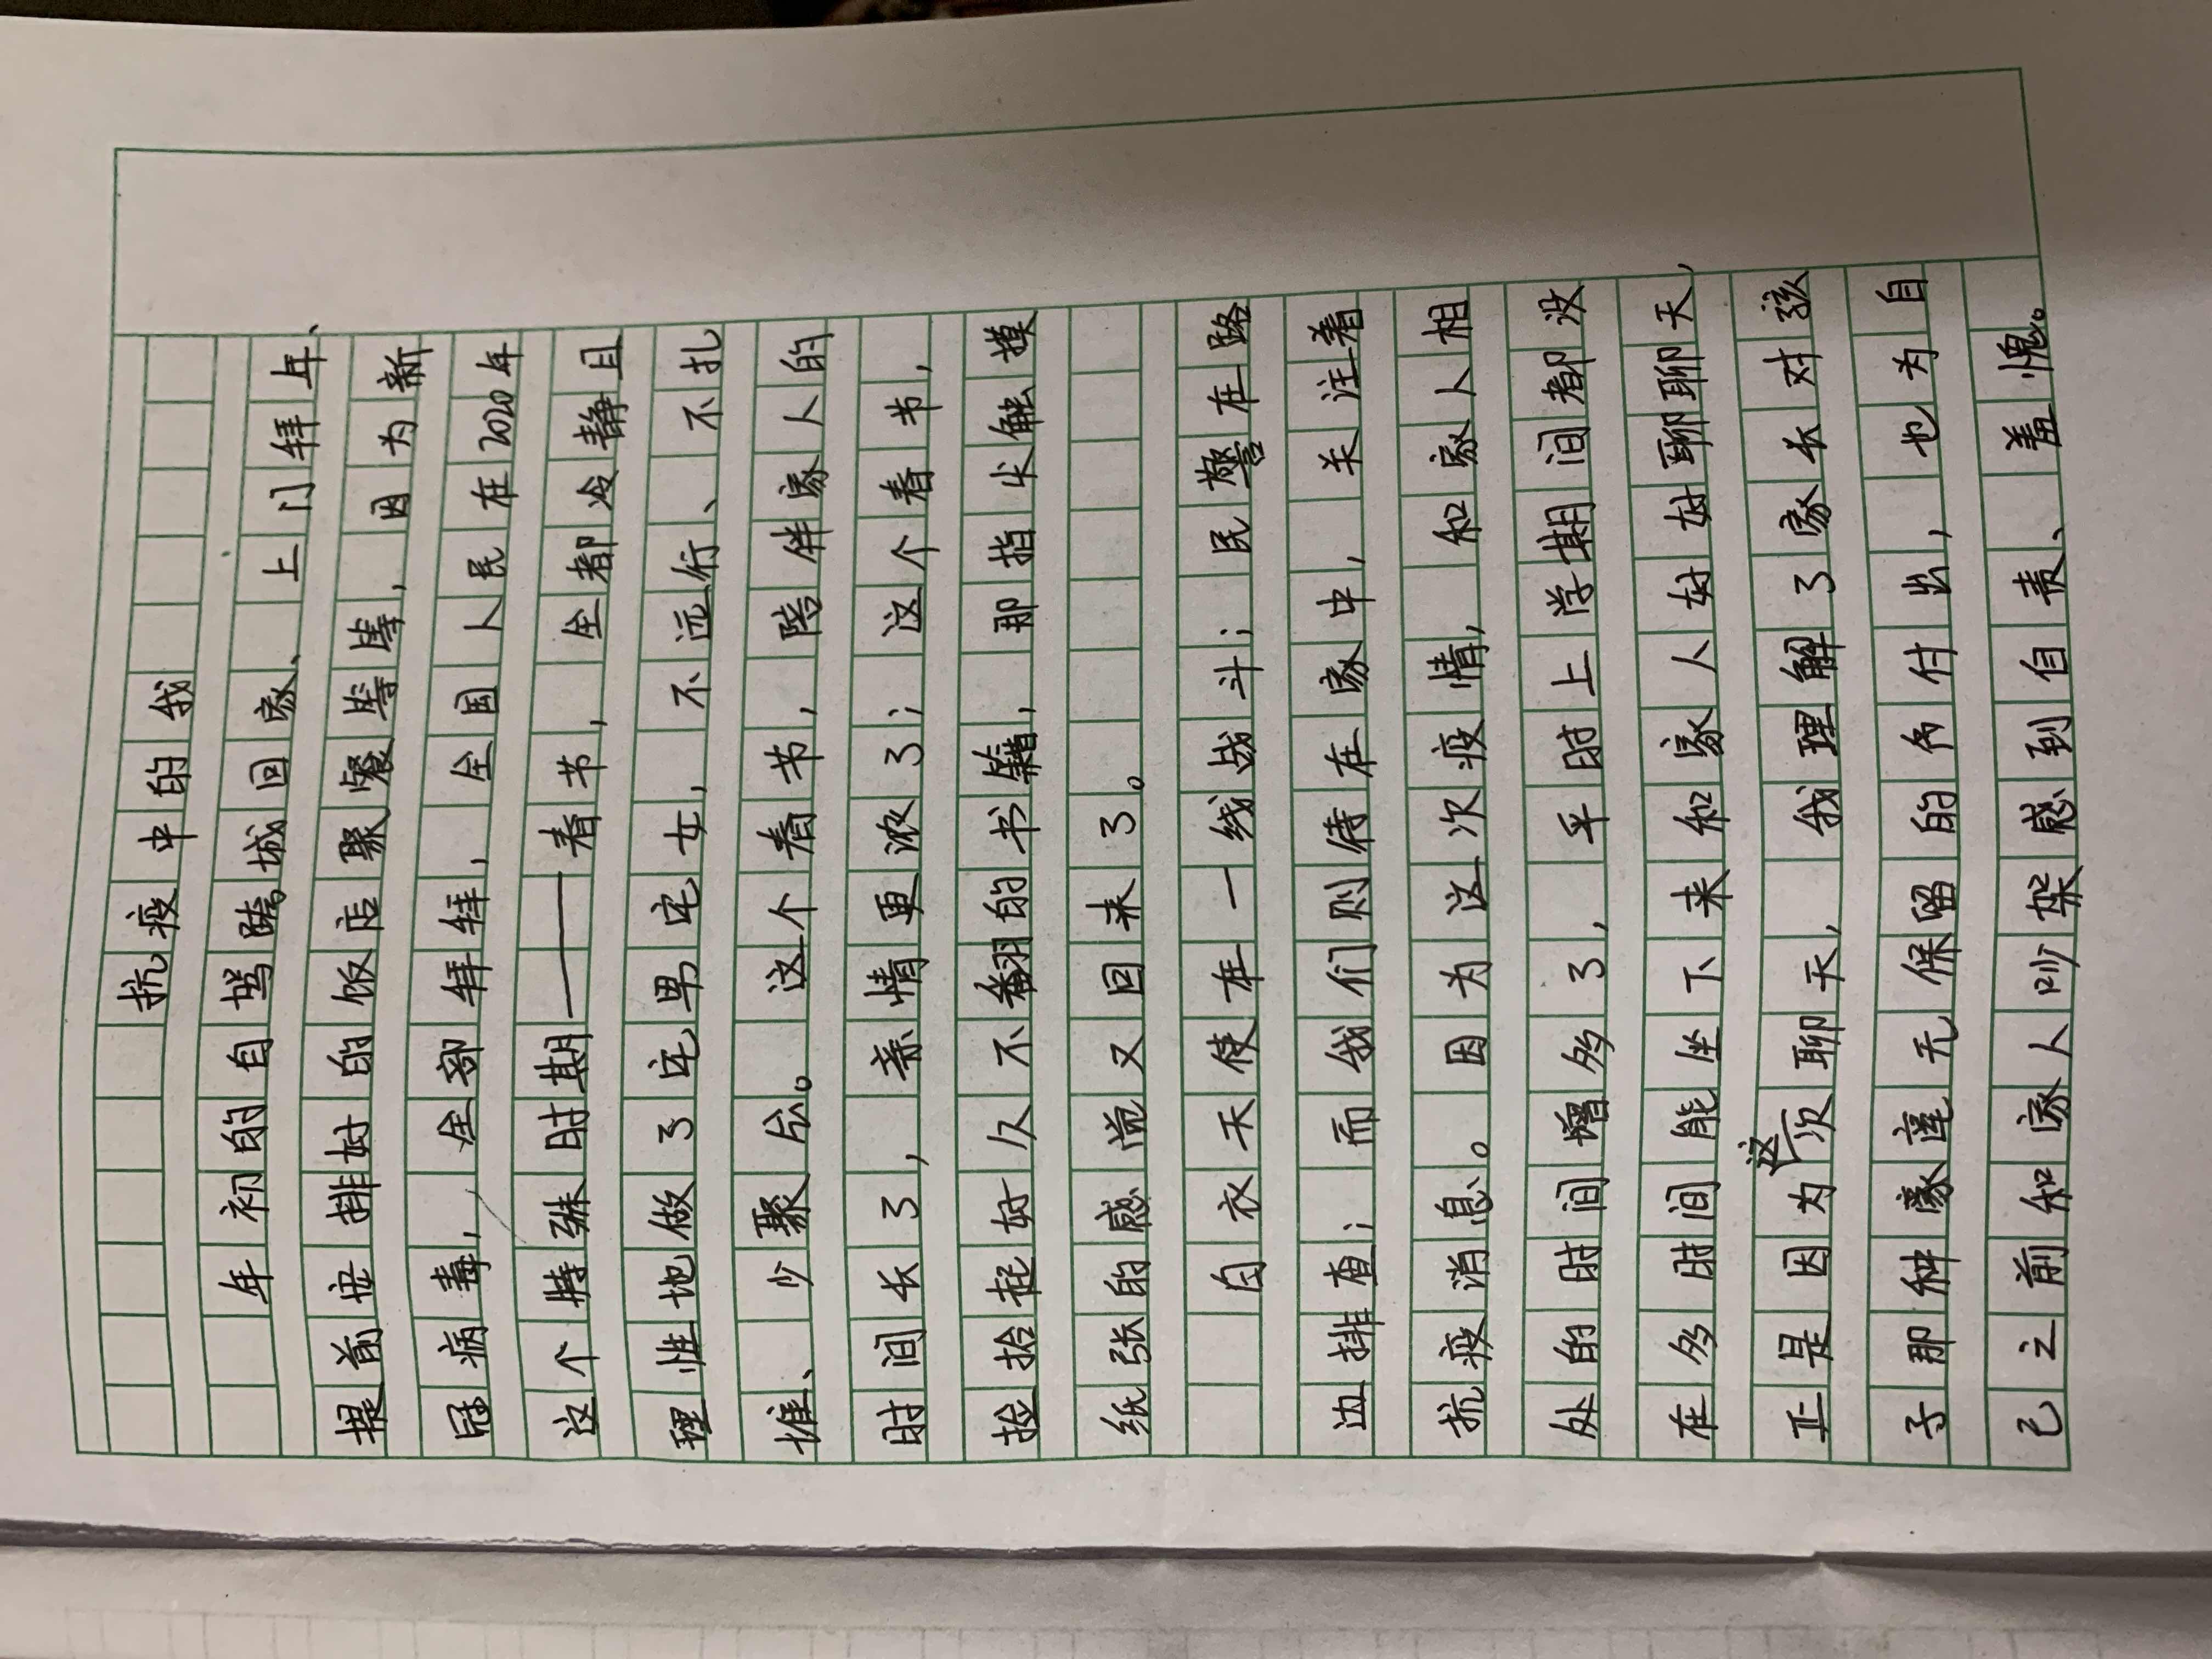 抗疫中的我
年初的自驾跨城回家、上门拜年、
提前安排好的饭店聚餐等等，因为新
冠病毒，全部拜拜，全国人民在2020年
这个特殊时期——春节，全都冷静且
理性地做了宅男宅女，不远行、不扎
堆、少聚会。这个春节，陪伴家人的
时间长了，亲情更浓了；这个春节，
捡拾起好久不翻的书籍，那指尖触摸
纸张的感觉又回来了。
白衣天使在一线战斗；民警在路
边排查；而我们则待在家中，关注着
抗疫消息。因为这次疫情，和家人相
处的时间增多了，平时上学期间都没
在多时间能坐下来和家人好好聊聊天，
正是因为这次聊天，我理解了家长对孩
子那种豪迈无保留的付出，也为自
己之前和家人吵架感到自责、羞愧。